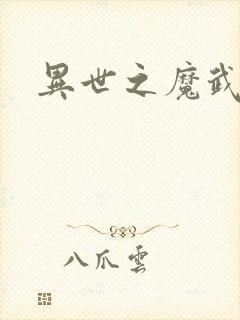 異世之魔武
八爪雲